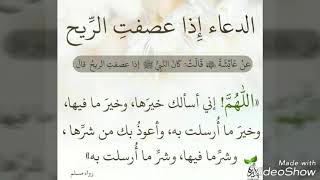 الدعاء إِذا عصفتِ الرِّيح
عَنْ عَائِشَةَ ﷺ قَالَتْ: كَانَ النَّبِيُّ ﷺ إذا عصفتِ الريحُ قالَ
«اللَّهُمَّ! إني أسألك خيرَها، وخيرَ ما فيها،
وخيرَ ما أُرسلت به، وأعوذُ بك من شرِّها ،
وشرِّ ما فيها، وشرِّ ما أُرسلت به»
رواه مسلم
Made with
VideoShow